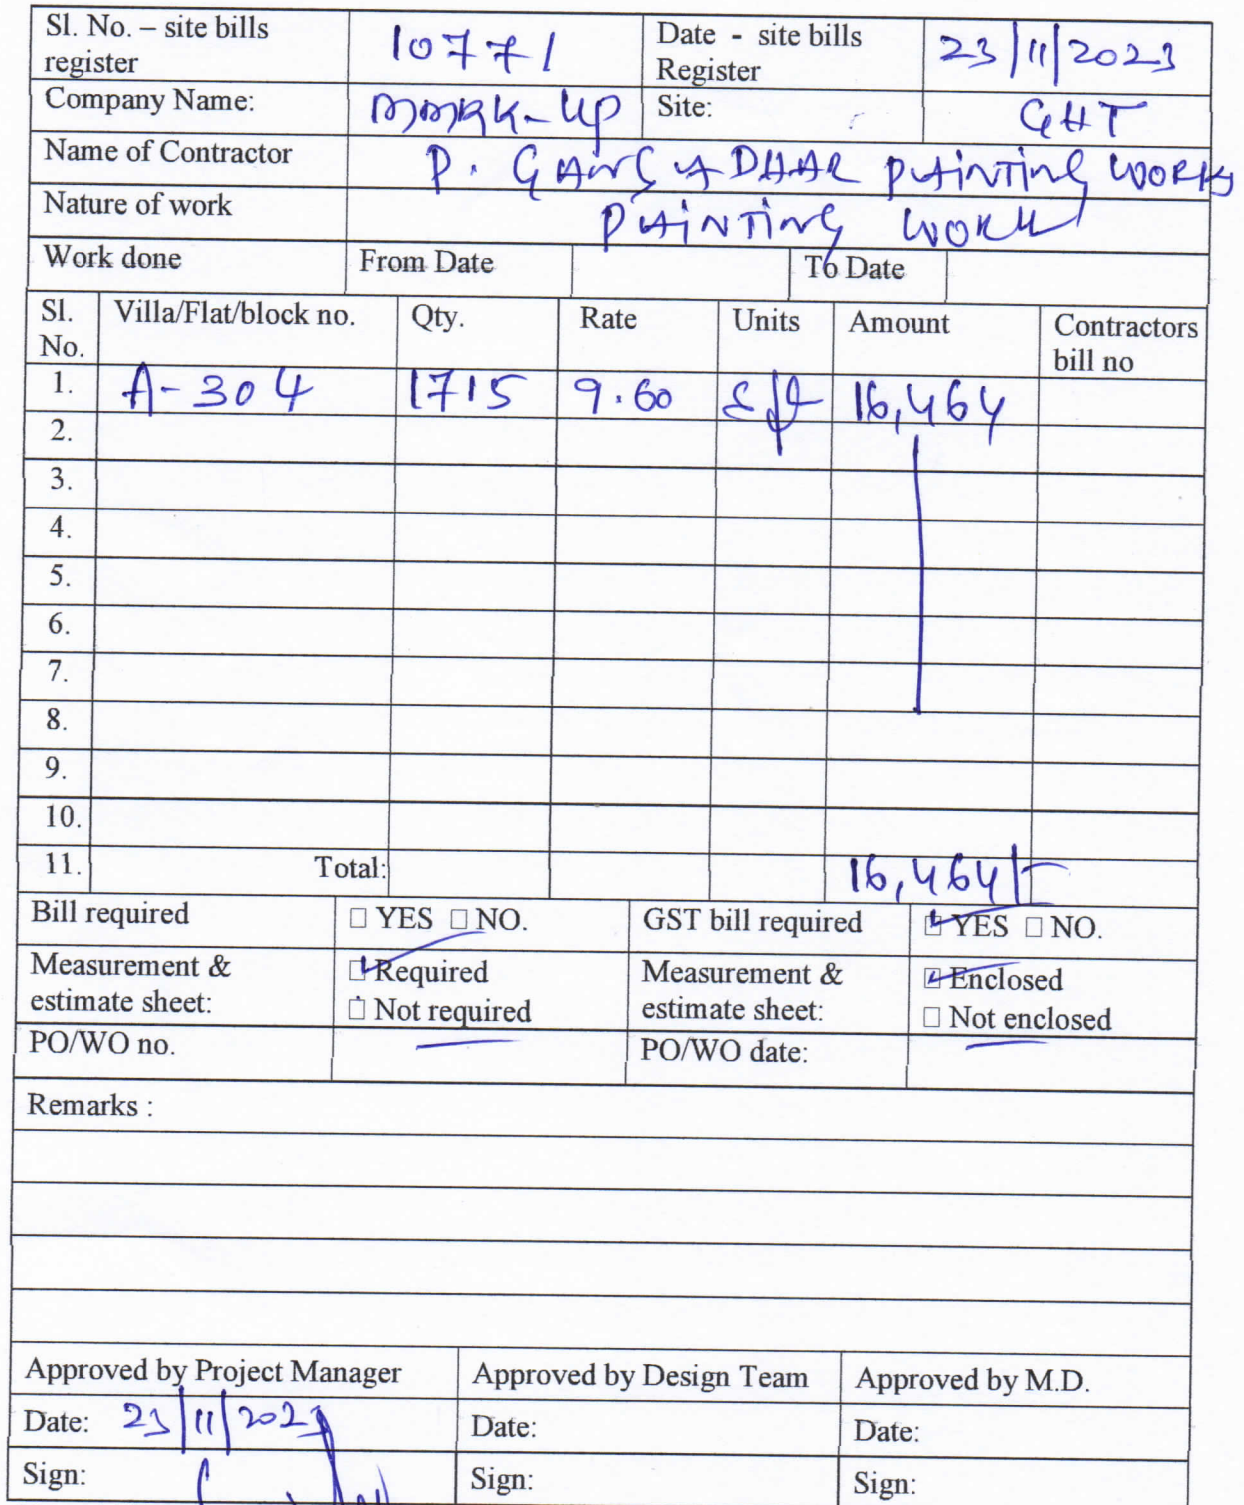 Sl. No. – site bills register 10771 Date - site bills Register 23/11/2023
Company Name: Site: GHT
Name of Contractor P. GANGADHAR PAINTING WORKS
Nature of work PAINTING WORK
Work done From Date To Date
Sl. No. Villa/Flat/block no. Qty. Rate Units Amount Contractors bill no
1. A-304 1715 9.60 sft 16,464
2.
3.
4.
5.
6.
7.
8.
9.
10.
11. Total: 16,464/-
Bill required □ YES □ NO. GST bill required ☑ YES □ NO.
Measurement & estimate sheet: ☑ Required □ Not required Measurement & estimate sheet: ☑ Enclosed □ Not enclosed
PO/WO no. PO/WO date:
Remarks :
Approved by Project Manager Approved by Design Team Approved by M.D.
Date: 23/11/2023 Date: Date:
Sign: Sign: Sign: